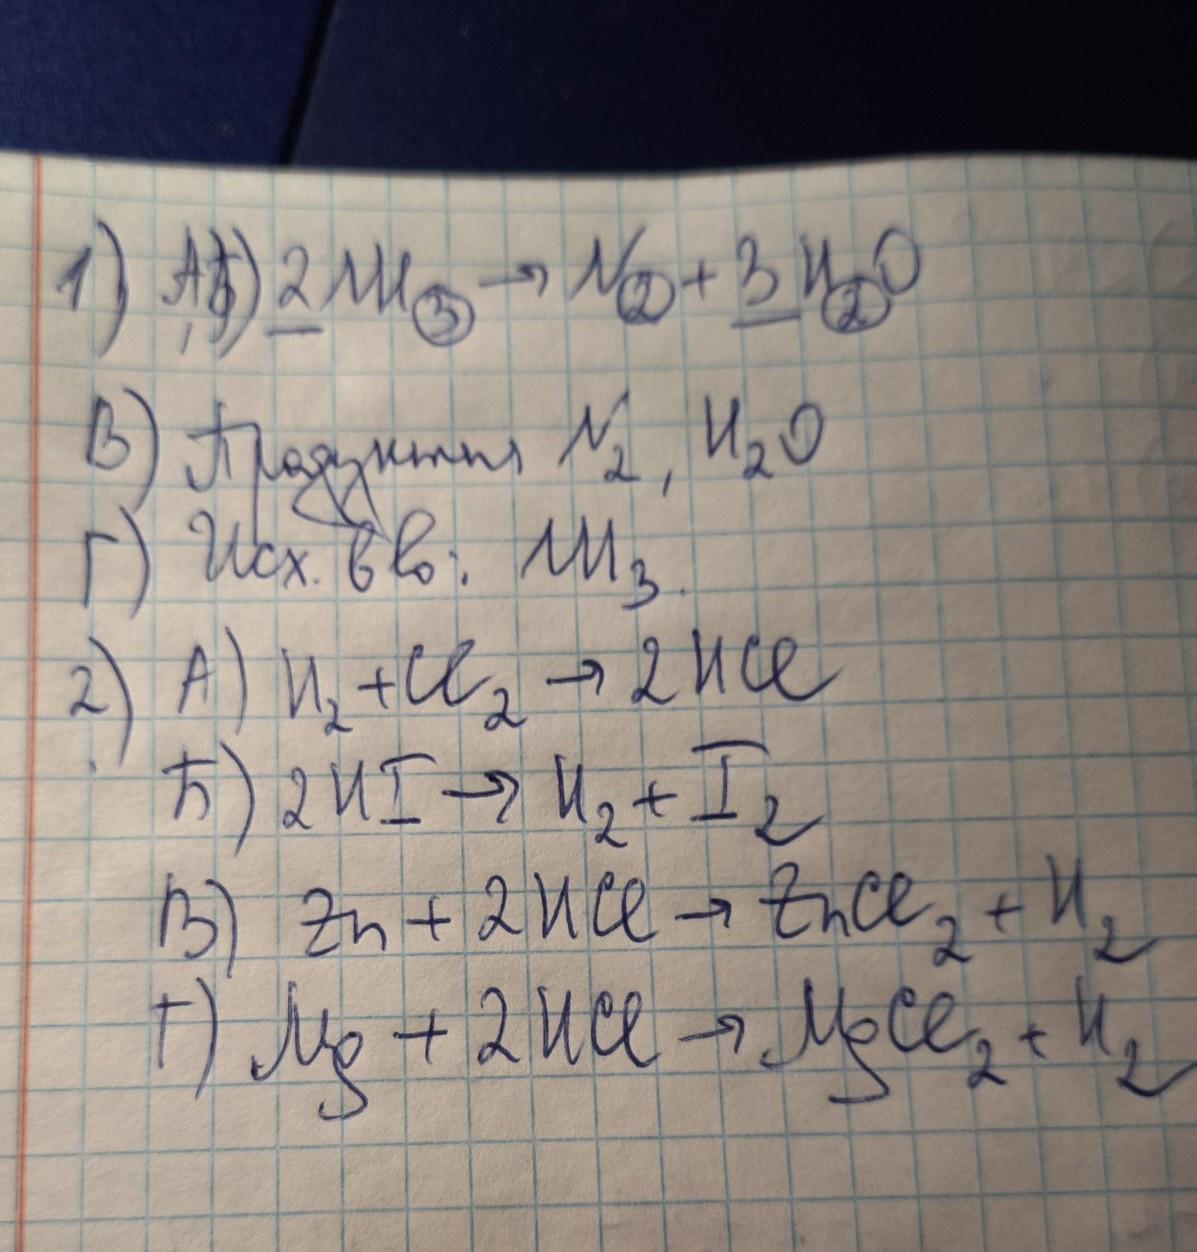 1) А,Б) 2NH₃ → N₂ + 3H₂O
В) Продукты N₂, H₂O
Г) Исх. в-во: NH₃.
2) А) H₂ + Cl₂ → 2HCl
Б) 2HI → H₂ + I₂
В) Zn + 2HCl → ZnCl₂ + H₂
Г) Mg + 2HCl → MgCl₂ + H₂